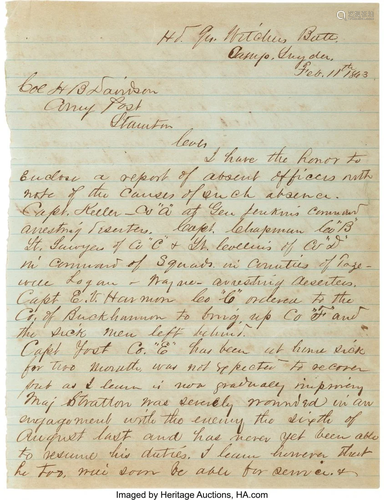 Hd Qrs Witchers Batt.
Camp Snyder
Feb. 11th 1863
Col H B Davidson
Army Post
Staunton
I have the honor to
Enclose a report of absent officers with
note of the causes of such absence.
Capt. Keller Co "A" at Gen Jenkins command
arresting deserters. Capt. Chapman Co "B"
Lt. Sawyers of Co "C" & Lt. Collins of Co
in command of Squads in Counties of Taze-
well Logan & Wayne arresting deserters.
Capt E. F. Harmon Co ordered to the
Co. of Buckhannon to bring up Co "F" and
the sick men left behind.
Capt Yost Co. "E" has been at home sick
for two months was not expected to recover
but as I learn is now gradually improving
Maj Stratton was severely wounded in an
engagement with the enemy the sixth of
August last and has never yet been able
to resume his duties. I learn however that
he too will soon be able for service. &
Imaged by Heritage Auctions, HA.com